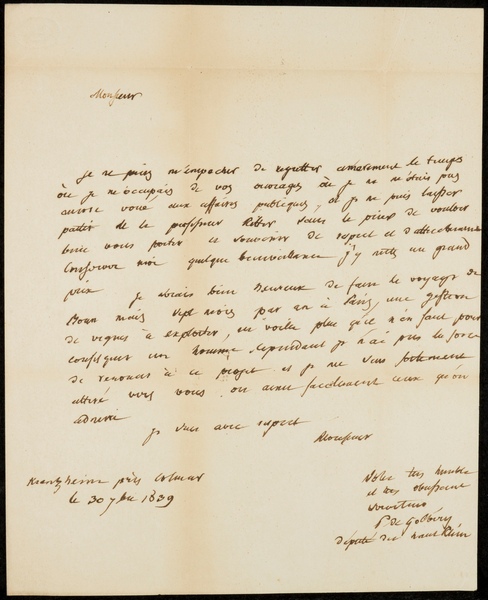 Monsieur
Je ne puis m'empecher de regretter amerement le temps
où je m'occupais de vos ouvrages où je ne m'étais pas
encore voué aux affaires publiques, et je ne puis laisser
partir de le professeur Ritter sans le prier de vouloir
bien vous porter ce souvenir de respect et d'attachement
Conservez moi quelque bienveillance j'y mets un grand
prix
Je serais bien heureux de faire le voyage de
Bonn mais sept mois par an à Paris, une gestion
de vignes à exploiter, en voila plus qu'il n'en faut pour
confisquer un homme cependant je n'ai pas la force
de renoncer à ce projet et je me sens fortement
attiré vers vous. on aime facilement ceux qu'on
admire
je suis avec respect
Monsieur
Votre tres humble
et tres obeissant
serviteur
P. de Golbery
député du haut Rhin
Kientzheim près Colmar
le 30 7bre 1839